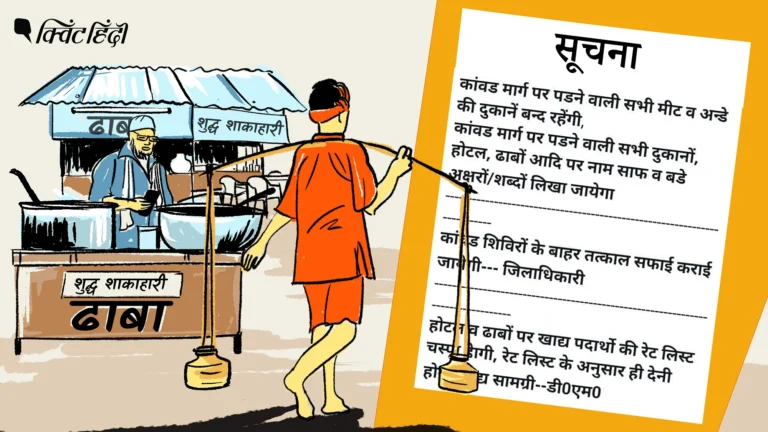 क्विंट हिंदी
ढाबा
शुद्ध शाकाहारी
शुद्ध शाकाहारी
ढाबा
सूचना
कांवड मार्ग पर पडने वाली सभी मीट व अन्डे
की दुकानें बन्द रहेंगी,
कांवड मार्ग पर पडने वाली सभी दुकानों,
होटल, ढाबों आदि पर नाम साफ व बडे
अक्षरों/शब्दों लिखा जायेगा
शिविरों के बाहर तत्काल सफाई कराई
जिलाधिकारी
व ढाबों पर खाद्य पदार्थो की रेट लिस्ट
रेट लिस्ट के अनुसार ही देनी
सामग्री--डी0एम0